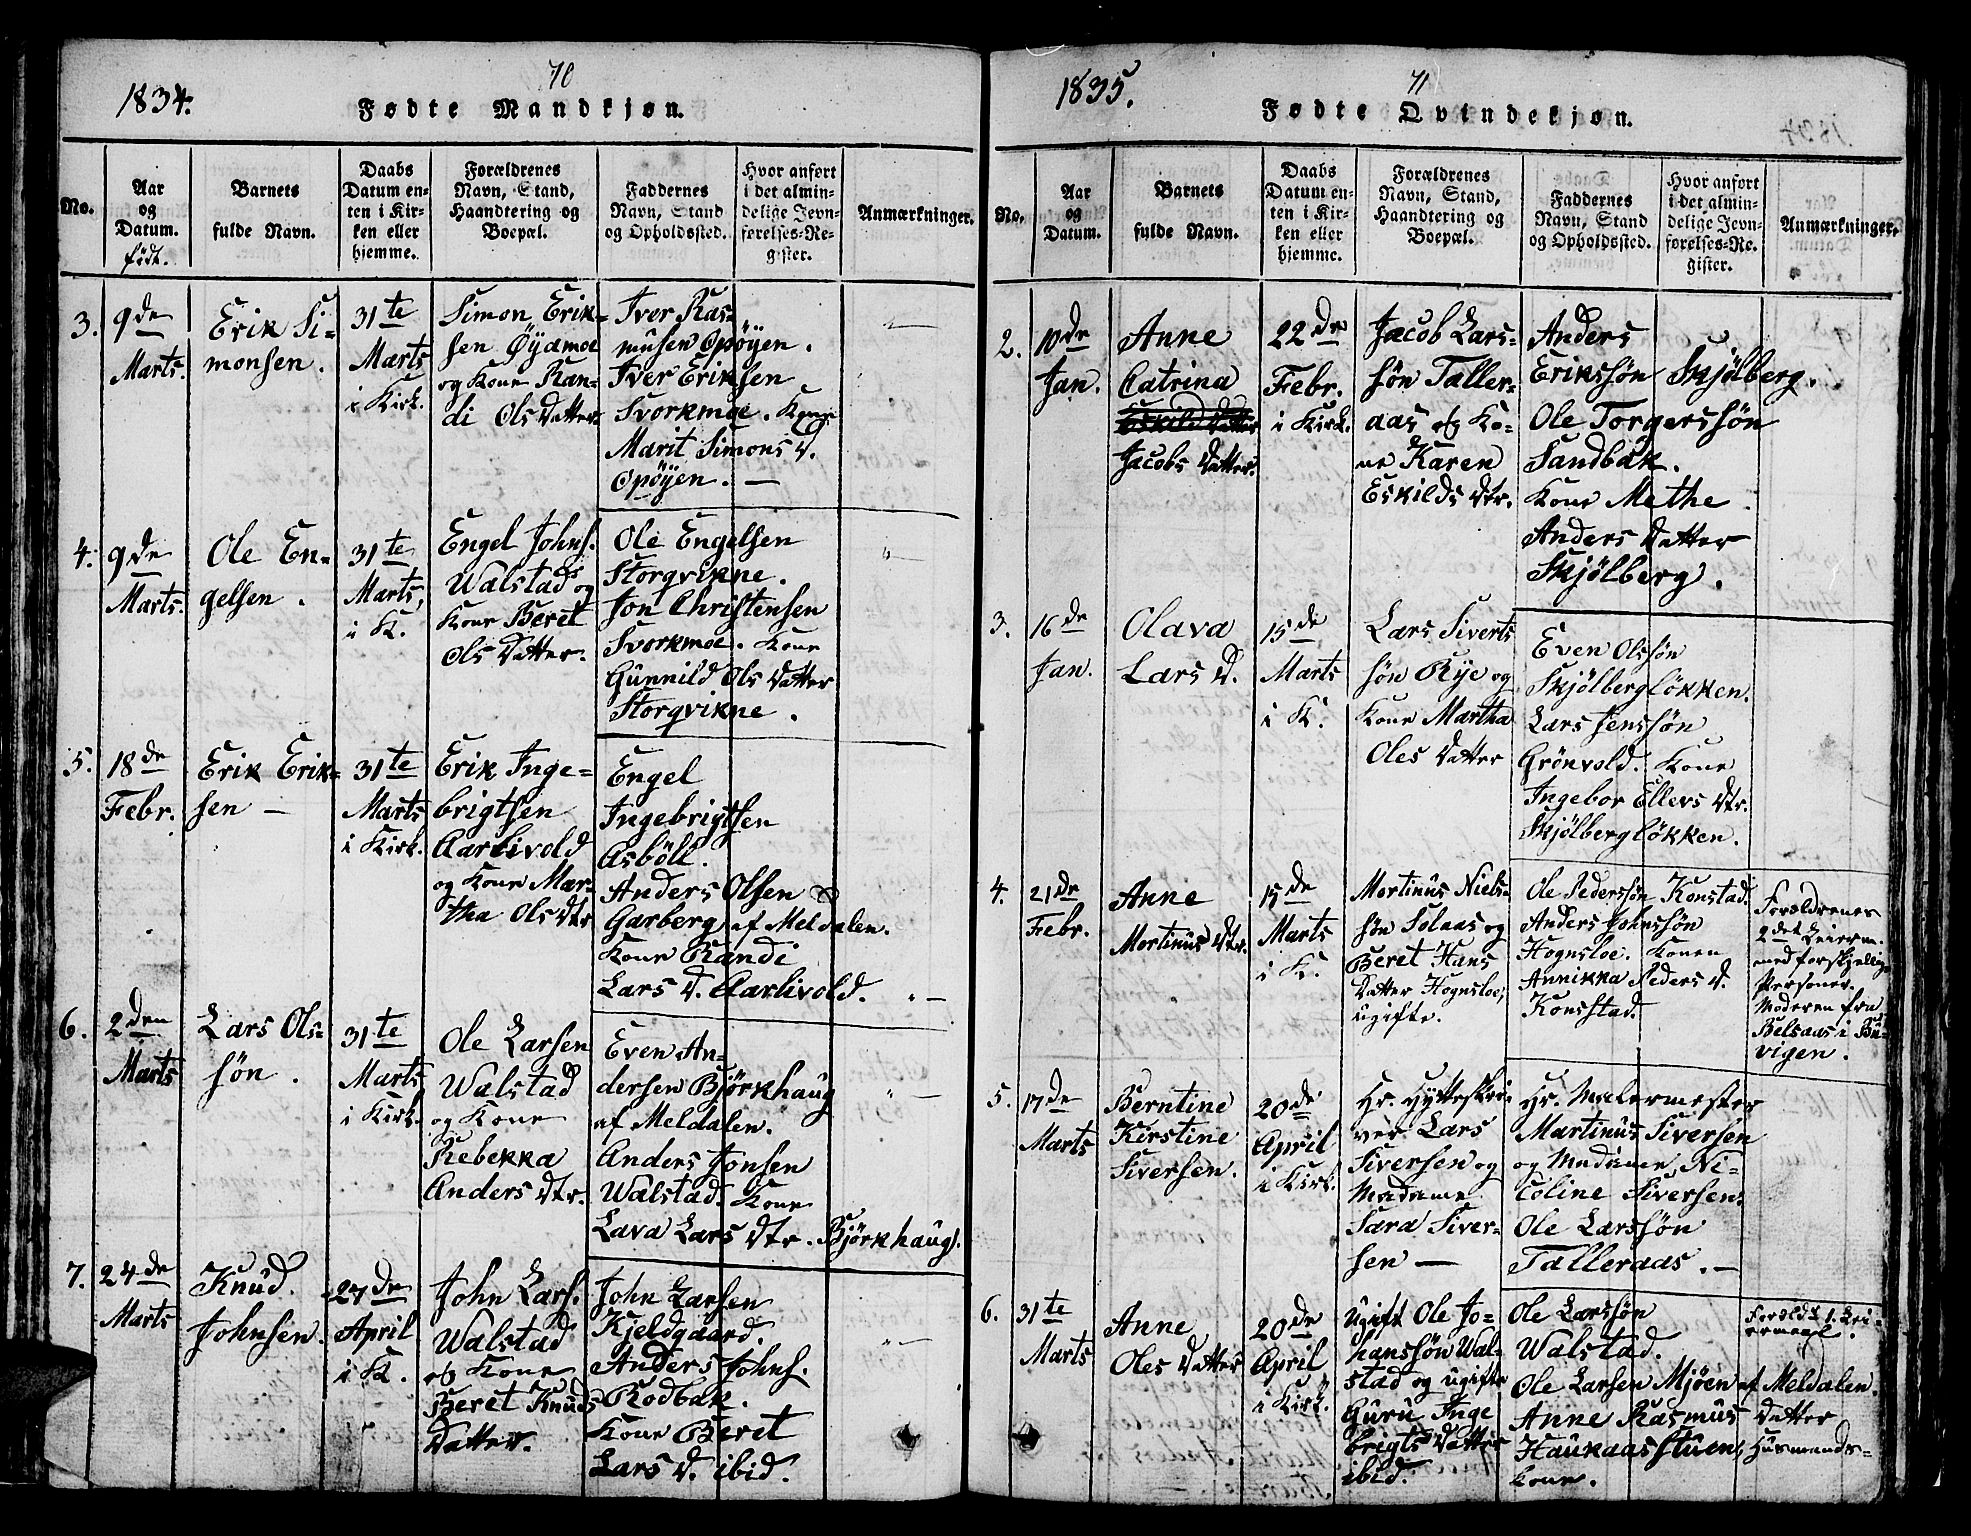 1834.
70
Fødte Mandkjøn.
No.
Aar
og
Datum.
født.
Barnets
fulde Navn.
Daabs
Datum en-
ten i Kir-
ken eller
hjemme.
Forældrenes
Navn, Stand,
Haandtering og
Boepæl.
Faddernes
Navn, Stand
og Opholdssted.
Hvor anført
i det almin-
delige Jevn-
førelses-Re-
gister.
Anmærkninger.
3.
9de
Marts.
Erik Si-
monsen.
31te
Marts
i Kirk.
Simon Erik-
sen Øyamoe
og Kone Ran-
di Ols Datter
Iver Ras-
musen Opøyen.
Iver Eriksen
Svorkmoe. Kone
Marit Simons D.
Opøyen. —
4.
9de
Marts.
Ole En-
gelsen.
31te
Marts,
i K.
Engel Johns.
Walstad og
Kone Beret
Ols Datter.
Ole Engelsen
Storqvikne.
Jon Christensen
Svorkmoe. Kone
Gunnild Ols Datter
Storqvikne.
5.
18de
Febr.
Erik Erik-
sen —
31te
Marts
i Kirk.
Erik Inge=
brigtsen
Aarlivold
og Kone Mar-
tha Ols Dtr
Engel
Ingebrigtsen
Asbøll.
Anders Olsen
Garberg af Meldalen.
Kone Randi
Lars D. Aarlivold.
6.
2den
Marts
Lars Ols-
søn.
31te
Marts
i Kirk.
Ole Larsen
Walstad
og Kone
Rebekka
Anders Dtr.
Even An-
dersen Bjørkhaug
af Meldalen.
Anders Jonsen
Walstad. Kone
Lava Lars Dtr. Bjørkhaug.
7.
24de
Marts
Knud
Johnsen.
27de
April
i K.
John Lars.
Walstad
og Kone
Beret Knuds
Datter.
John Larsen
Kjeldgaard.
Anders Johns.
Rodbak.
Kone Beret
Lars D. ibid.
1835.
71
Fødte Qvindekjøn.
No.
Aar
og
Datum.
Barnets
fulde Navn.
Daabs
Datum en-
ten i Kir-
ken eller
hjemme.
Forældrenes
Navn, Stand,
Haandtering og
Boepæl.
Faddernes
Navn, Stand
og Opholdssted.
Hvor anført
i det almin-
delige Jevn-
førelses-Re-
gister.
Anmærkninger.
2.
10de
Jan.
Anne
Catrina
Eskilds Datter
Jacobs Datter.
22de
Febr.
i Kirk.
Jacob Lars=
søn Taller-
aas og Ko-
ne Karen
Eskilds Dtr.
Anders
Erikssøn Skjølberg.
Ole Torgerssøn
Sandbak.
Kone Methe
Anders Datter
Skjølberg.
3.
16de
Jan.
Olava
Lars D.
15de
Marts
i K.
Lars Siverts
søn Rye og
Kone Martha
Oles Datter
Even Olssøn
Skjølbergløkken.
Lars Jenssøn
Grønvold. Kone
Ingebor Ellevs Dtr.
Skjølbergløkken.
4.
21de
Febr.
Anne
Mortinus Dtr.
15de
Marts
i K.
Mortinus Niels-
søn Solaas og
Beret Hans
Datter Hognsloe,
ugifte.
Ole Pederssøn Konstad.
Anders Johnssøn
Hognsloe. Konen
Annikka Peders D.
Konstad.
Forældrenes
2det Leierm.
med forskjellige
Personer.
Moderen fra
Belsaas i Bu-
vigen.
5.
17de
Marts
Berntine
Kirstine
Siversen.
20de
April
i Kirk.
Hr. Hytteskri-
ver Lars
Siversen og
Madame
Sara Siver-
sen —
Hr. Malermester
Martinus Siversen
og Madame Ni-
coline Siversen.
Ole Larssøn
Talleraas. —
6.
31te
Marts
Anne
Oles Datter
20de
April
i Kirk.
Ugift Ole Jo-
hanssøn Wal-
stad og ugifte
Guru Inge
brigts Datter
ibid.
Ole Larssøn
Walstad.
Ole Larsen Mjøen af Meldalen.
Anne Rasmus Datter
Haukaasstuen, Husmands-
kone.
Foreld: 1. Lei-
ermaal.